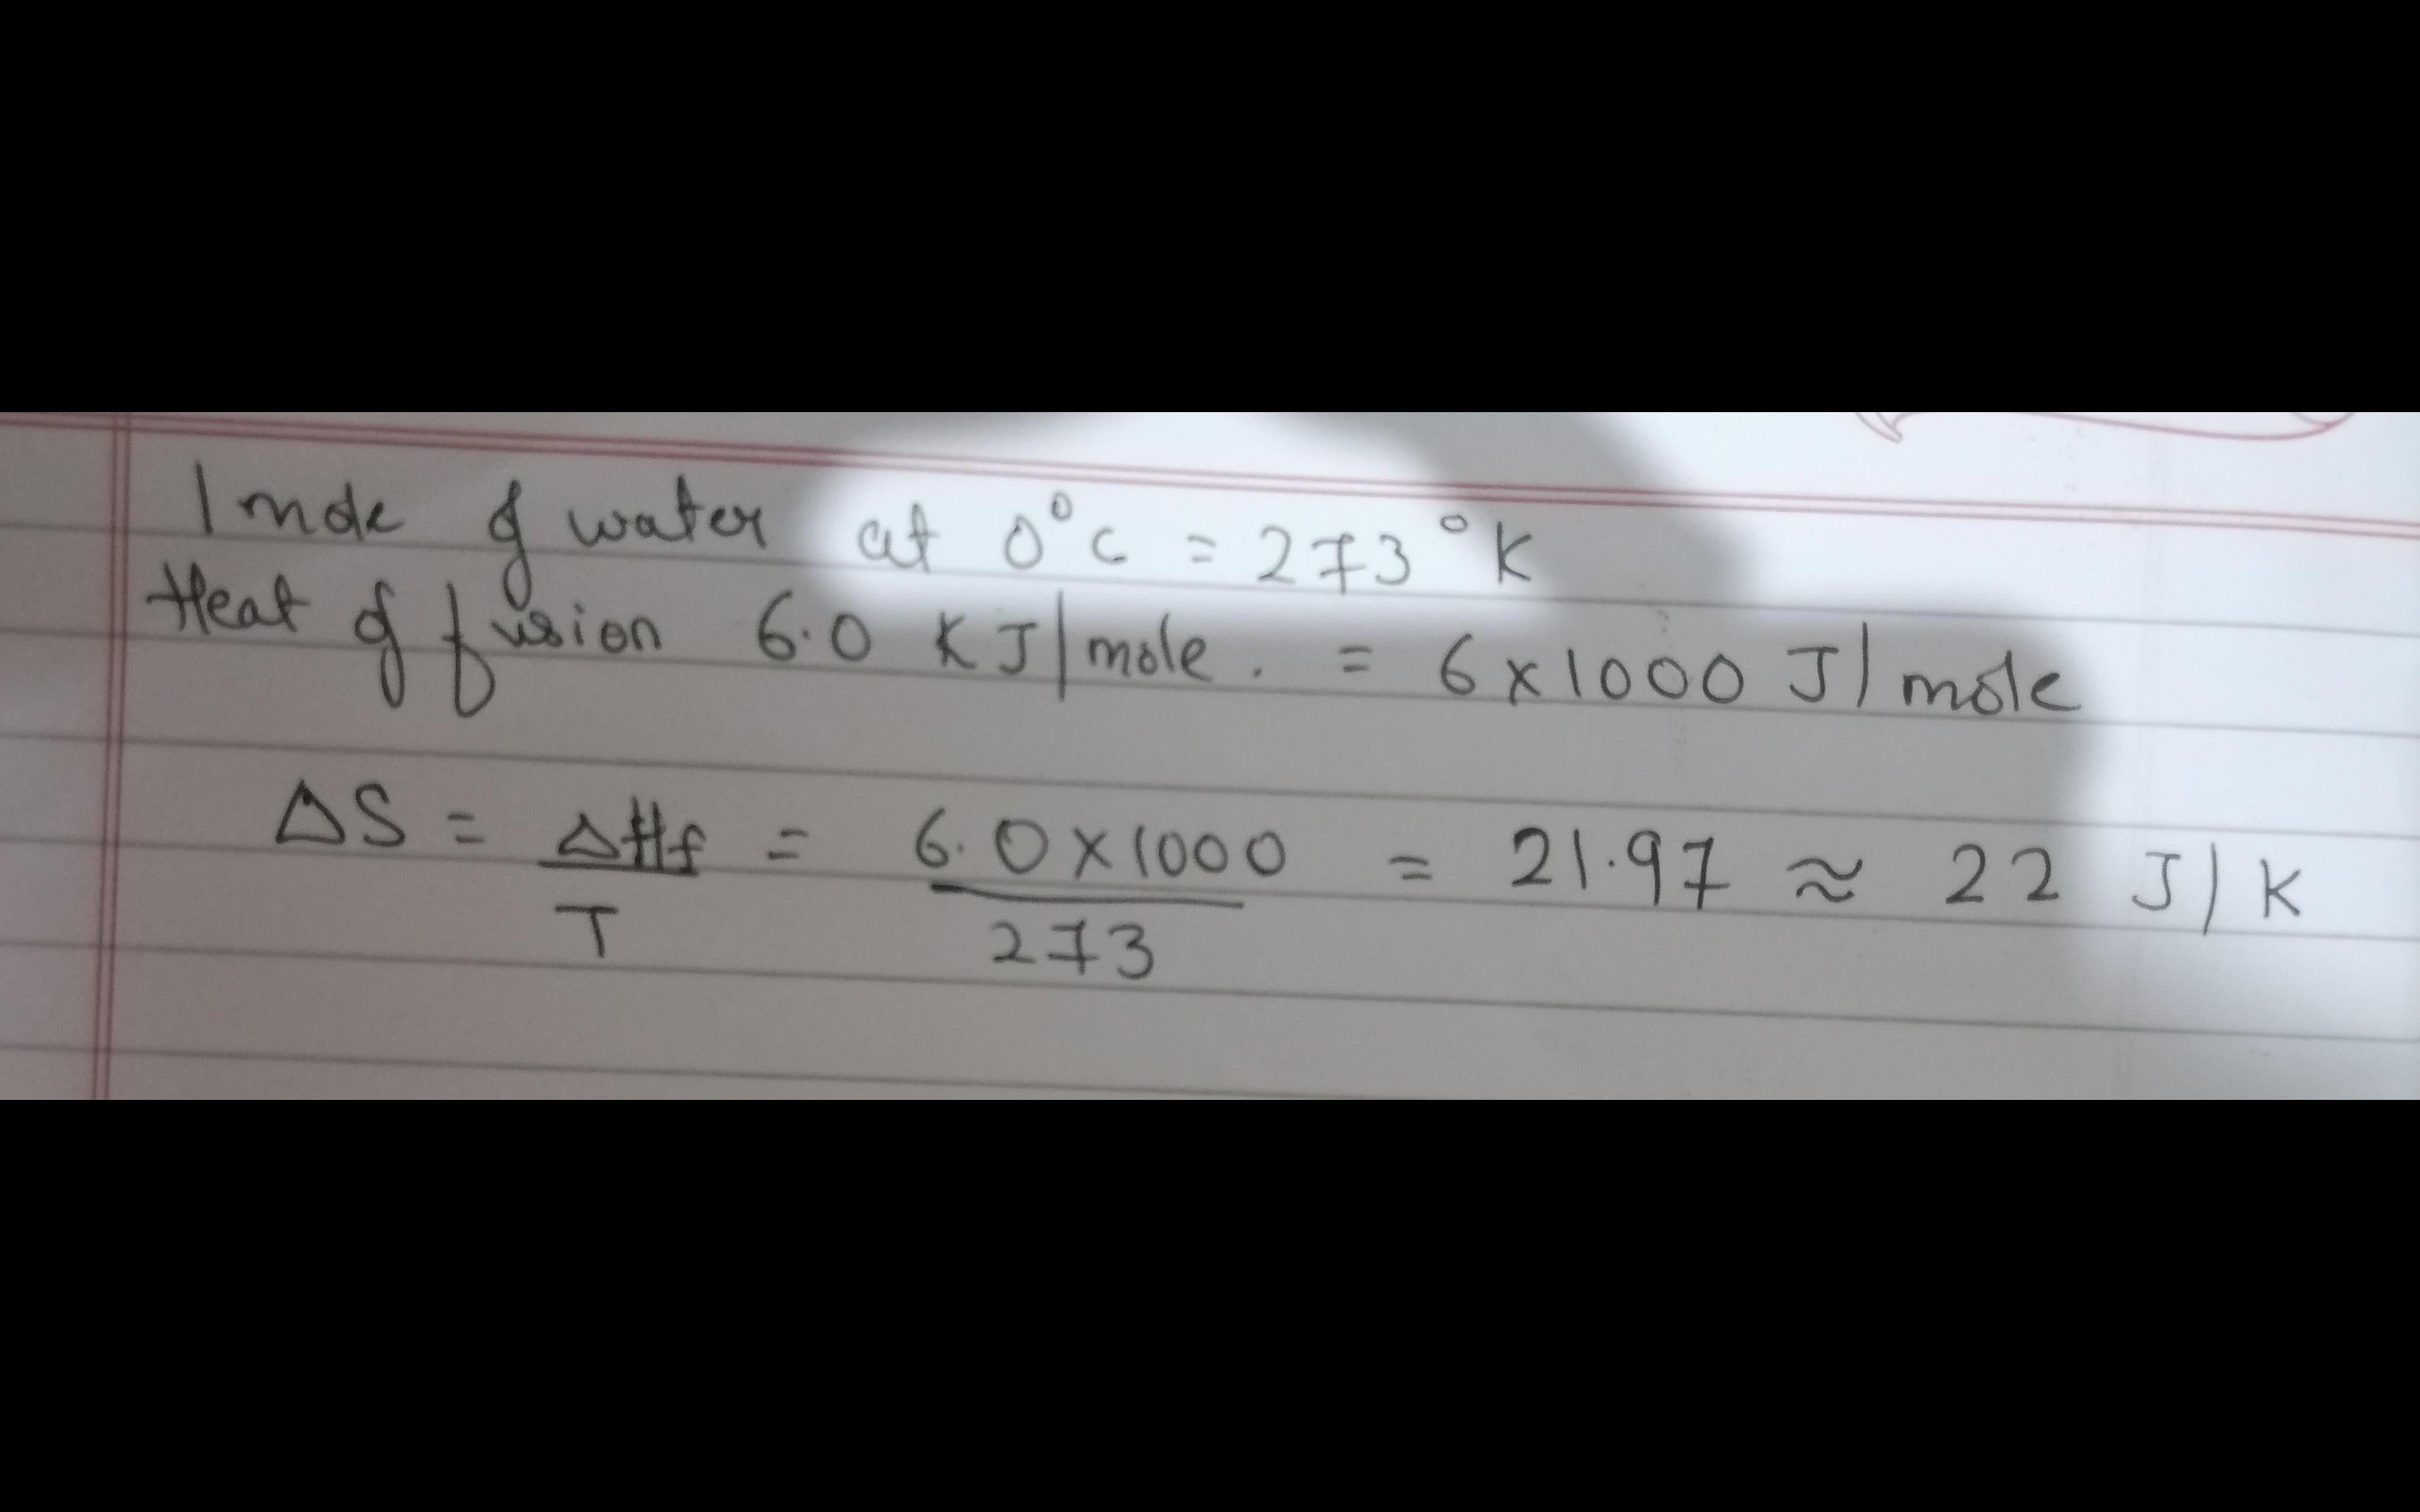 1 mole of water at 0°C = 273°K
Heat of fusion 6.0 KJ/mole. = 6x1000 J/mole
ΔS = ΔHf/T = 6.0x1000/273 = 21.97 ≈ 22 J/K